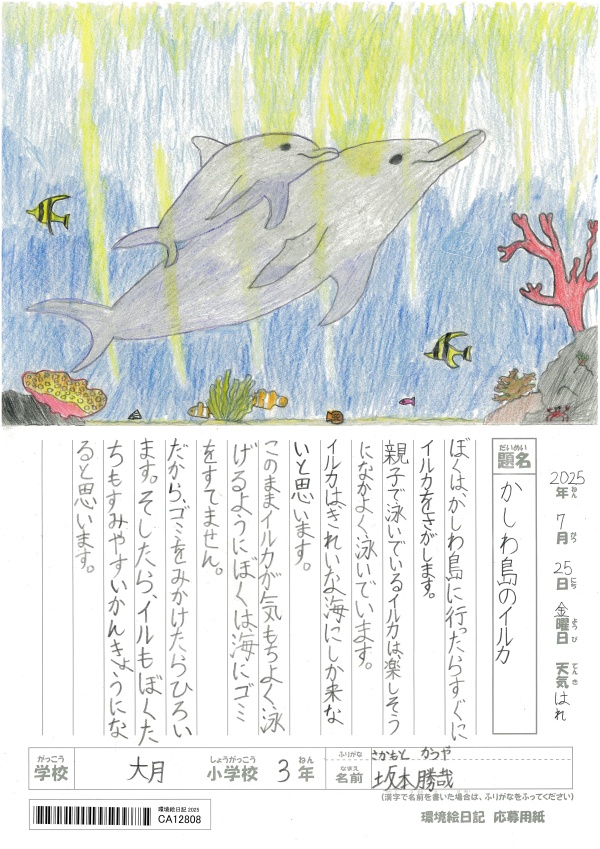 2025年ねん 7月がつ 25日にち 金曜日ようび 天気てんき はれ
だいめい
題名
かしわ島のイルカ
ぼくは、かしわ島に行ったらすぐに
イルカをさがします。
親子で泳いでいるイルカは楽しそう
になかよく泳いでいます。
イルカはきれいな海にしか来な
いと思います。
このままイルカが気もちよく泳
げるようにぼくは海にゴミ
をすてません。
だから、ゴミをみかけたらひろい
ます。そしたら、イルもぼくた
ちもすみやすいかんきょうにな
ると思います。
がっこう
学校
大月
しょうがっこう
小学校
3
ねん
年
ふりがな
さかもと かつや
なまえ
名前
坂本勝哉
(漢字で名前を書いた場合は、ふりがなをふってください)
環境絵日記 2025
CA12808
環境絵日記 応募用紙